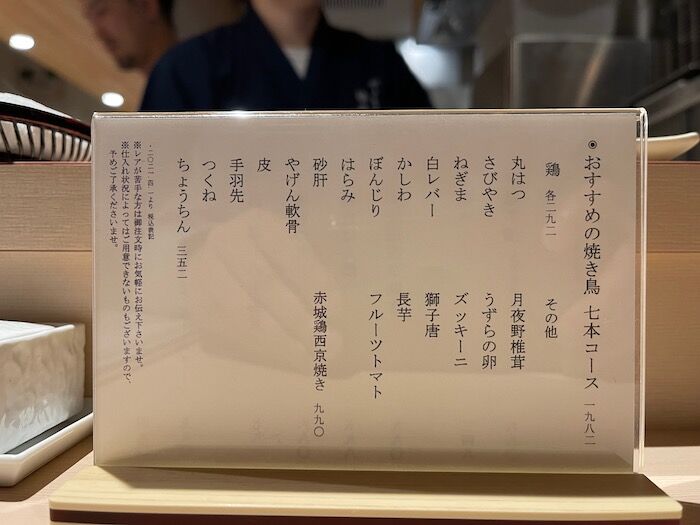 ◉おすすめの焼き鳥 七本コース 一九八二
鶏 各二九二
丸はつ
さびやき
ねぎま
白レバー
かしわ
ぼんじり
はらみ
砂肝
やげん軟骨
皮
手羽先
つくね
ちょうちん 三五二
その他
月夜野椎茸
うずらの卵
ズッキーニ
獅子唐
長芋
フルーツトマト
赤城鶏西京焼き 九九〇
・二〇二一(四)より 税込表記
※レアが苦手な方は御注文時にお気軽にお伝え下さいませ。
※仕入れ状況によってはご用意できないものもございますので、
予めご了承くださいませ。